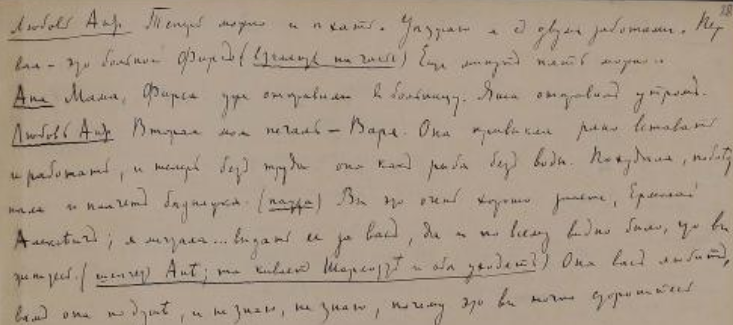 Любовь Анд. Теперь можно и ехать. Уезжаю я съ двумя заботами. Пер
вая – это больной Фирсъ (взглянув на часы) Еще минутъ пять можно..
Аня Мама, Фирса уже отправили в больницу. Яша отправилъ утромъ.
Любовь Анд Вторая моя печаль – Варя. Она привыкла рано вставать
и работать, и теперь безъ труда она какъ рыба безъ воды. Похудела, побледн
нела и плачетъ бедняжка. (пауза) Вы это очень хорошо знаете, Ермолай
Алексеичъ; я мечтала... выдать ее за васъ, да и по всему видно было, что вы
женитесь. (шепчет Ане; та кивает Шарлотте и обе уходятъ) Она васъ любитъ,
вамъ она по душе, и не знаю, не знаю, почему это вы точно сторонитесь